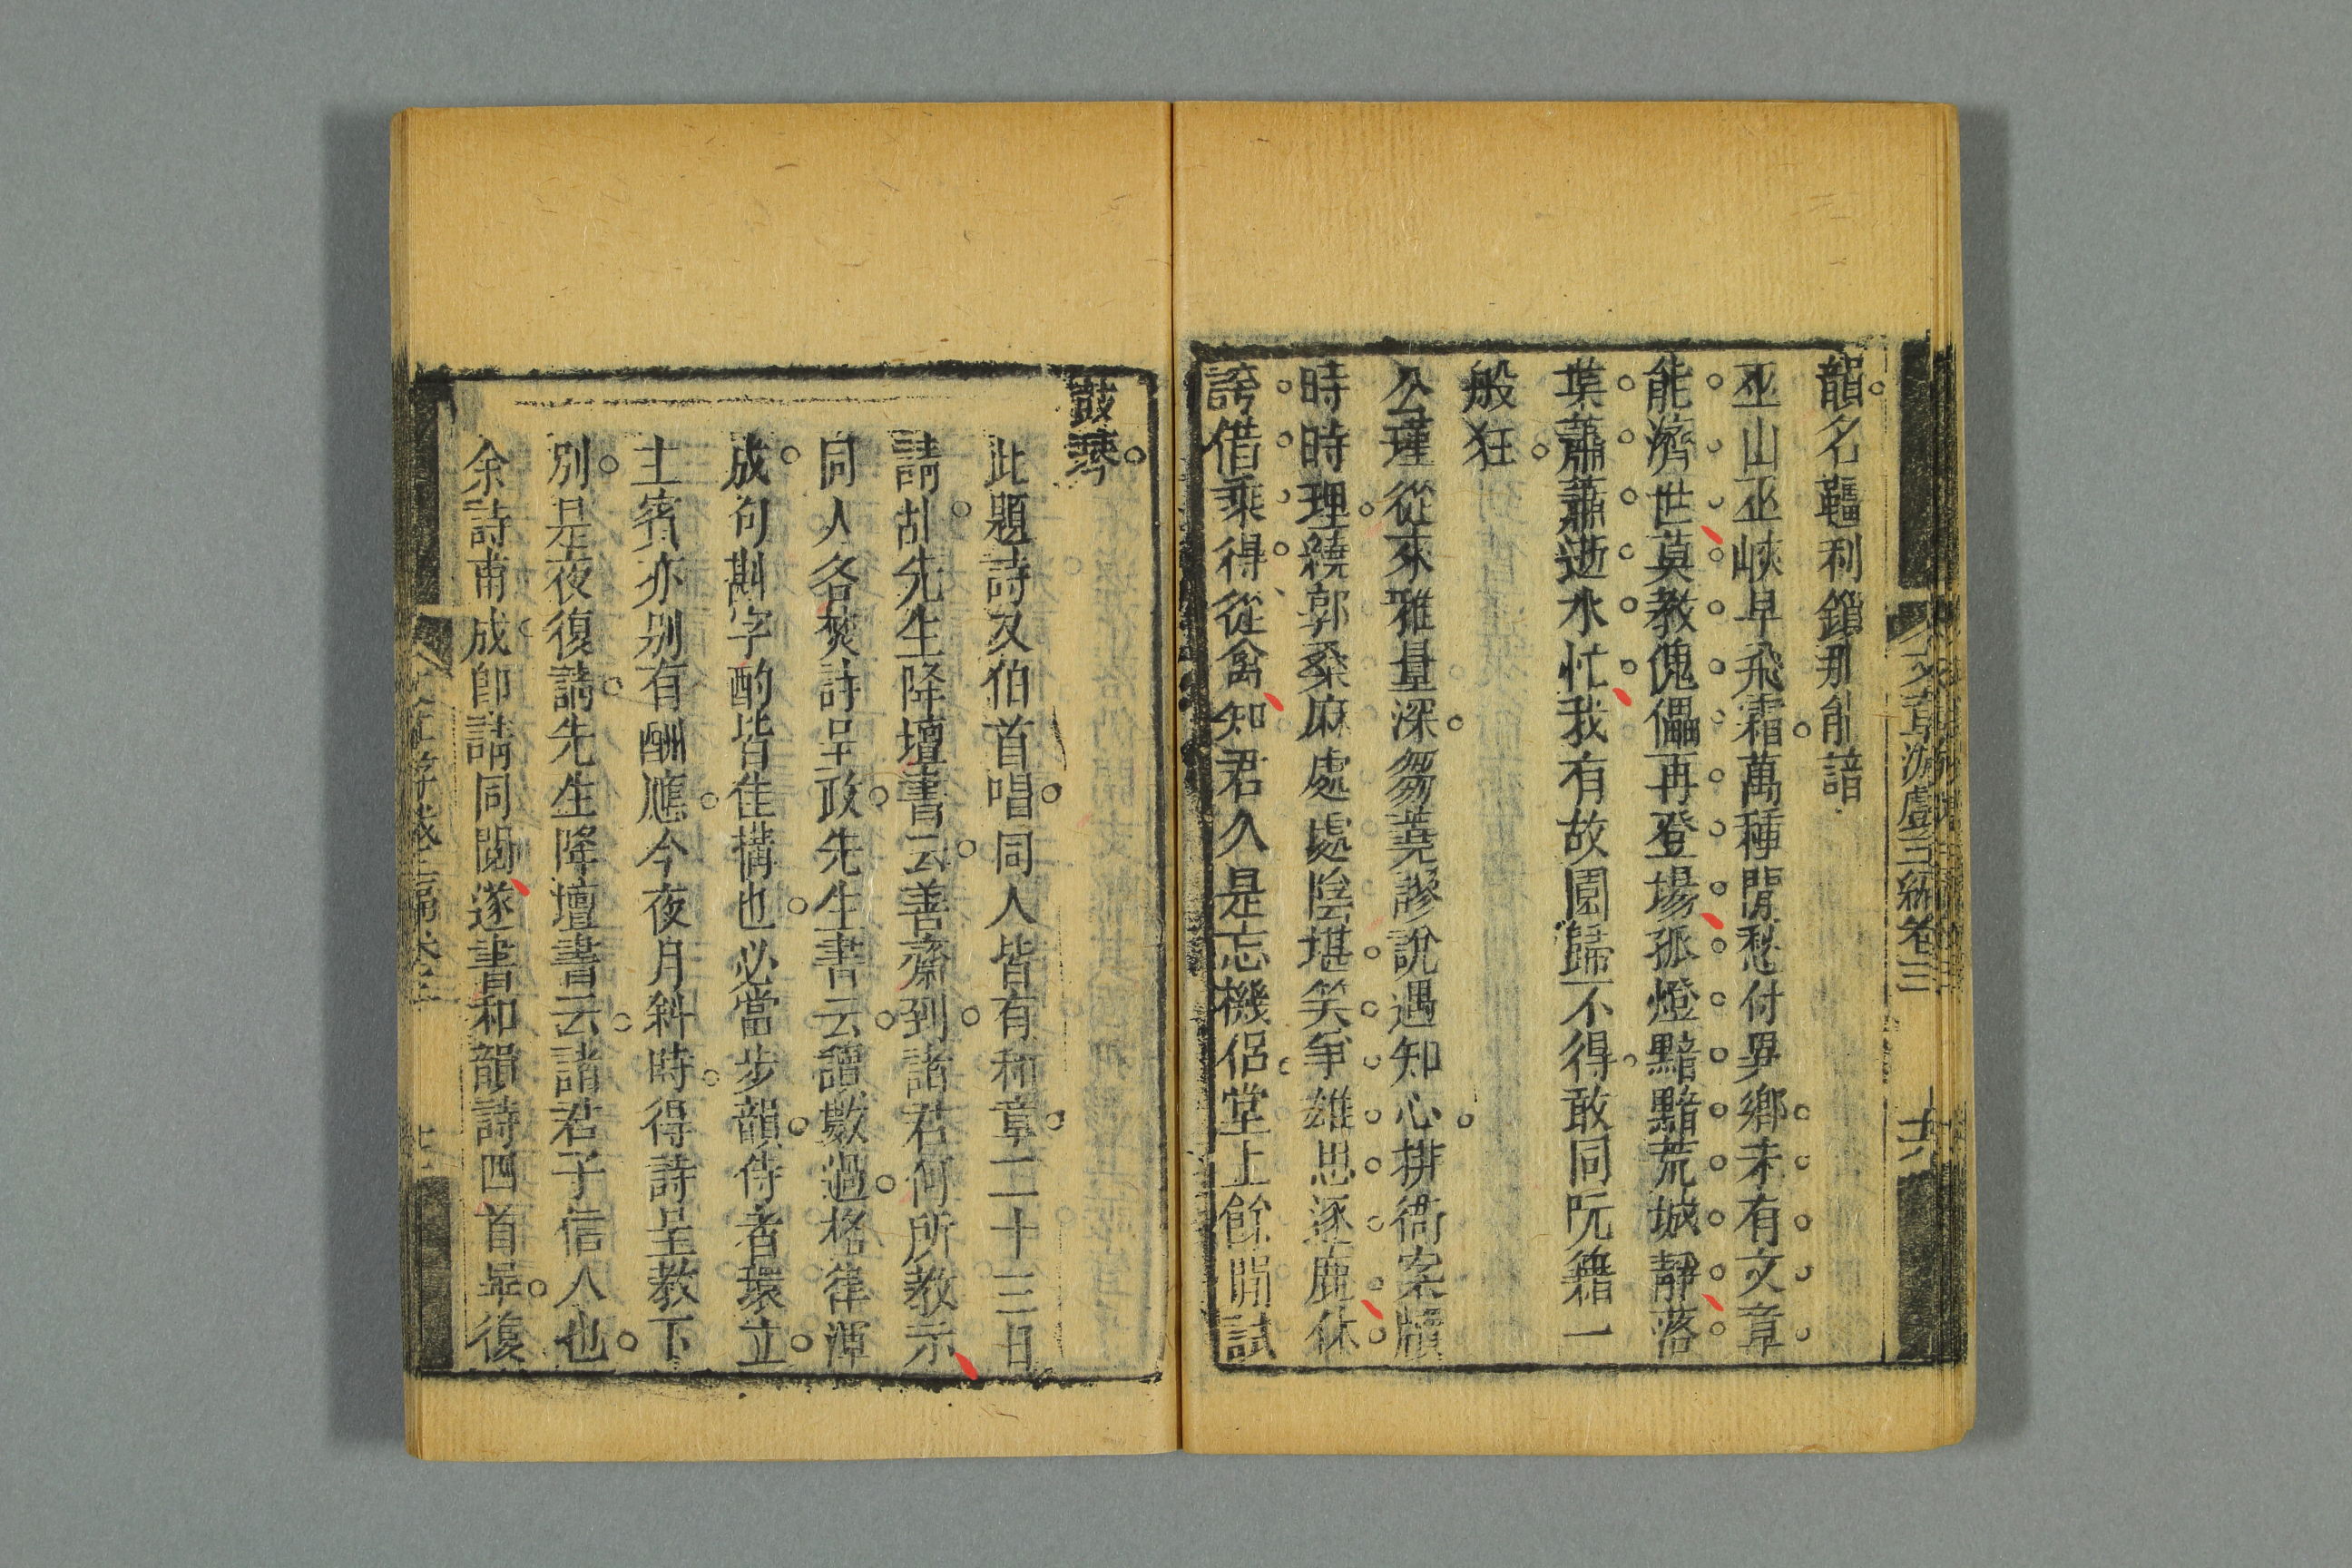 文章游戲三編卷三
十六
韻名韁利鎖那能諳
巫山巫峽早飛霜萬種閒愁付異鄉未有文章
能濟世莫教傀儡再登場孤燈黯黯荒城靜落
葉蕭蕭逝水忙我有故園歸不得敢同阮籍一
般狂
公瑾從來雅量深芻蕘謬說遇知心排衙案牘
時時理繞郭桑麻處處陰堪笑爭雄思逐鹿休
誇借乘得從禽知君久是忘機侶堂上餘閒試
鼓琴
此題詩久伯首唱同人皆有和章二十三日
請胡先生降壇書云善齋到諸君何所教示
同人各焚詩呈政先生書云讀數過格律渾
成句斟字酌皆佳搆也必當步韻侍者環立
主賓亦别有酬應今夜月斜時得詩呈教下
別是夜復請先生降壇書云諸君子信人也
余詩甫成卽請同閱遂書和韻詩四首畢復